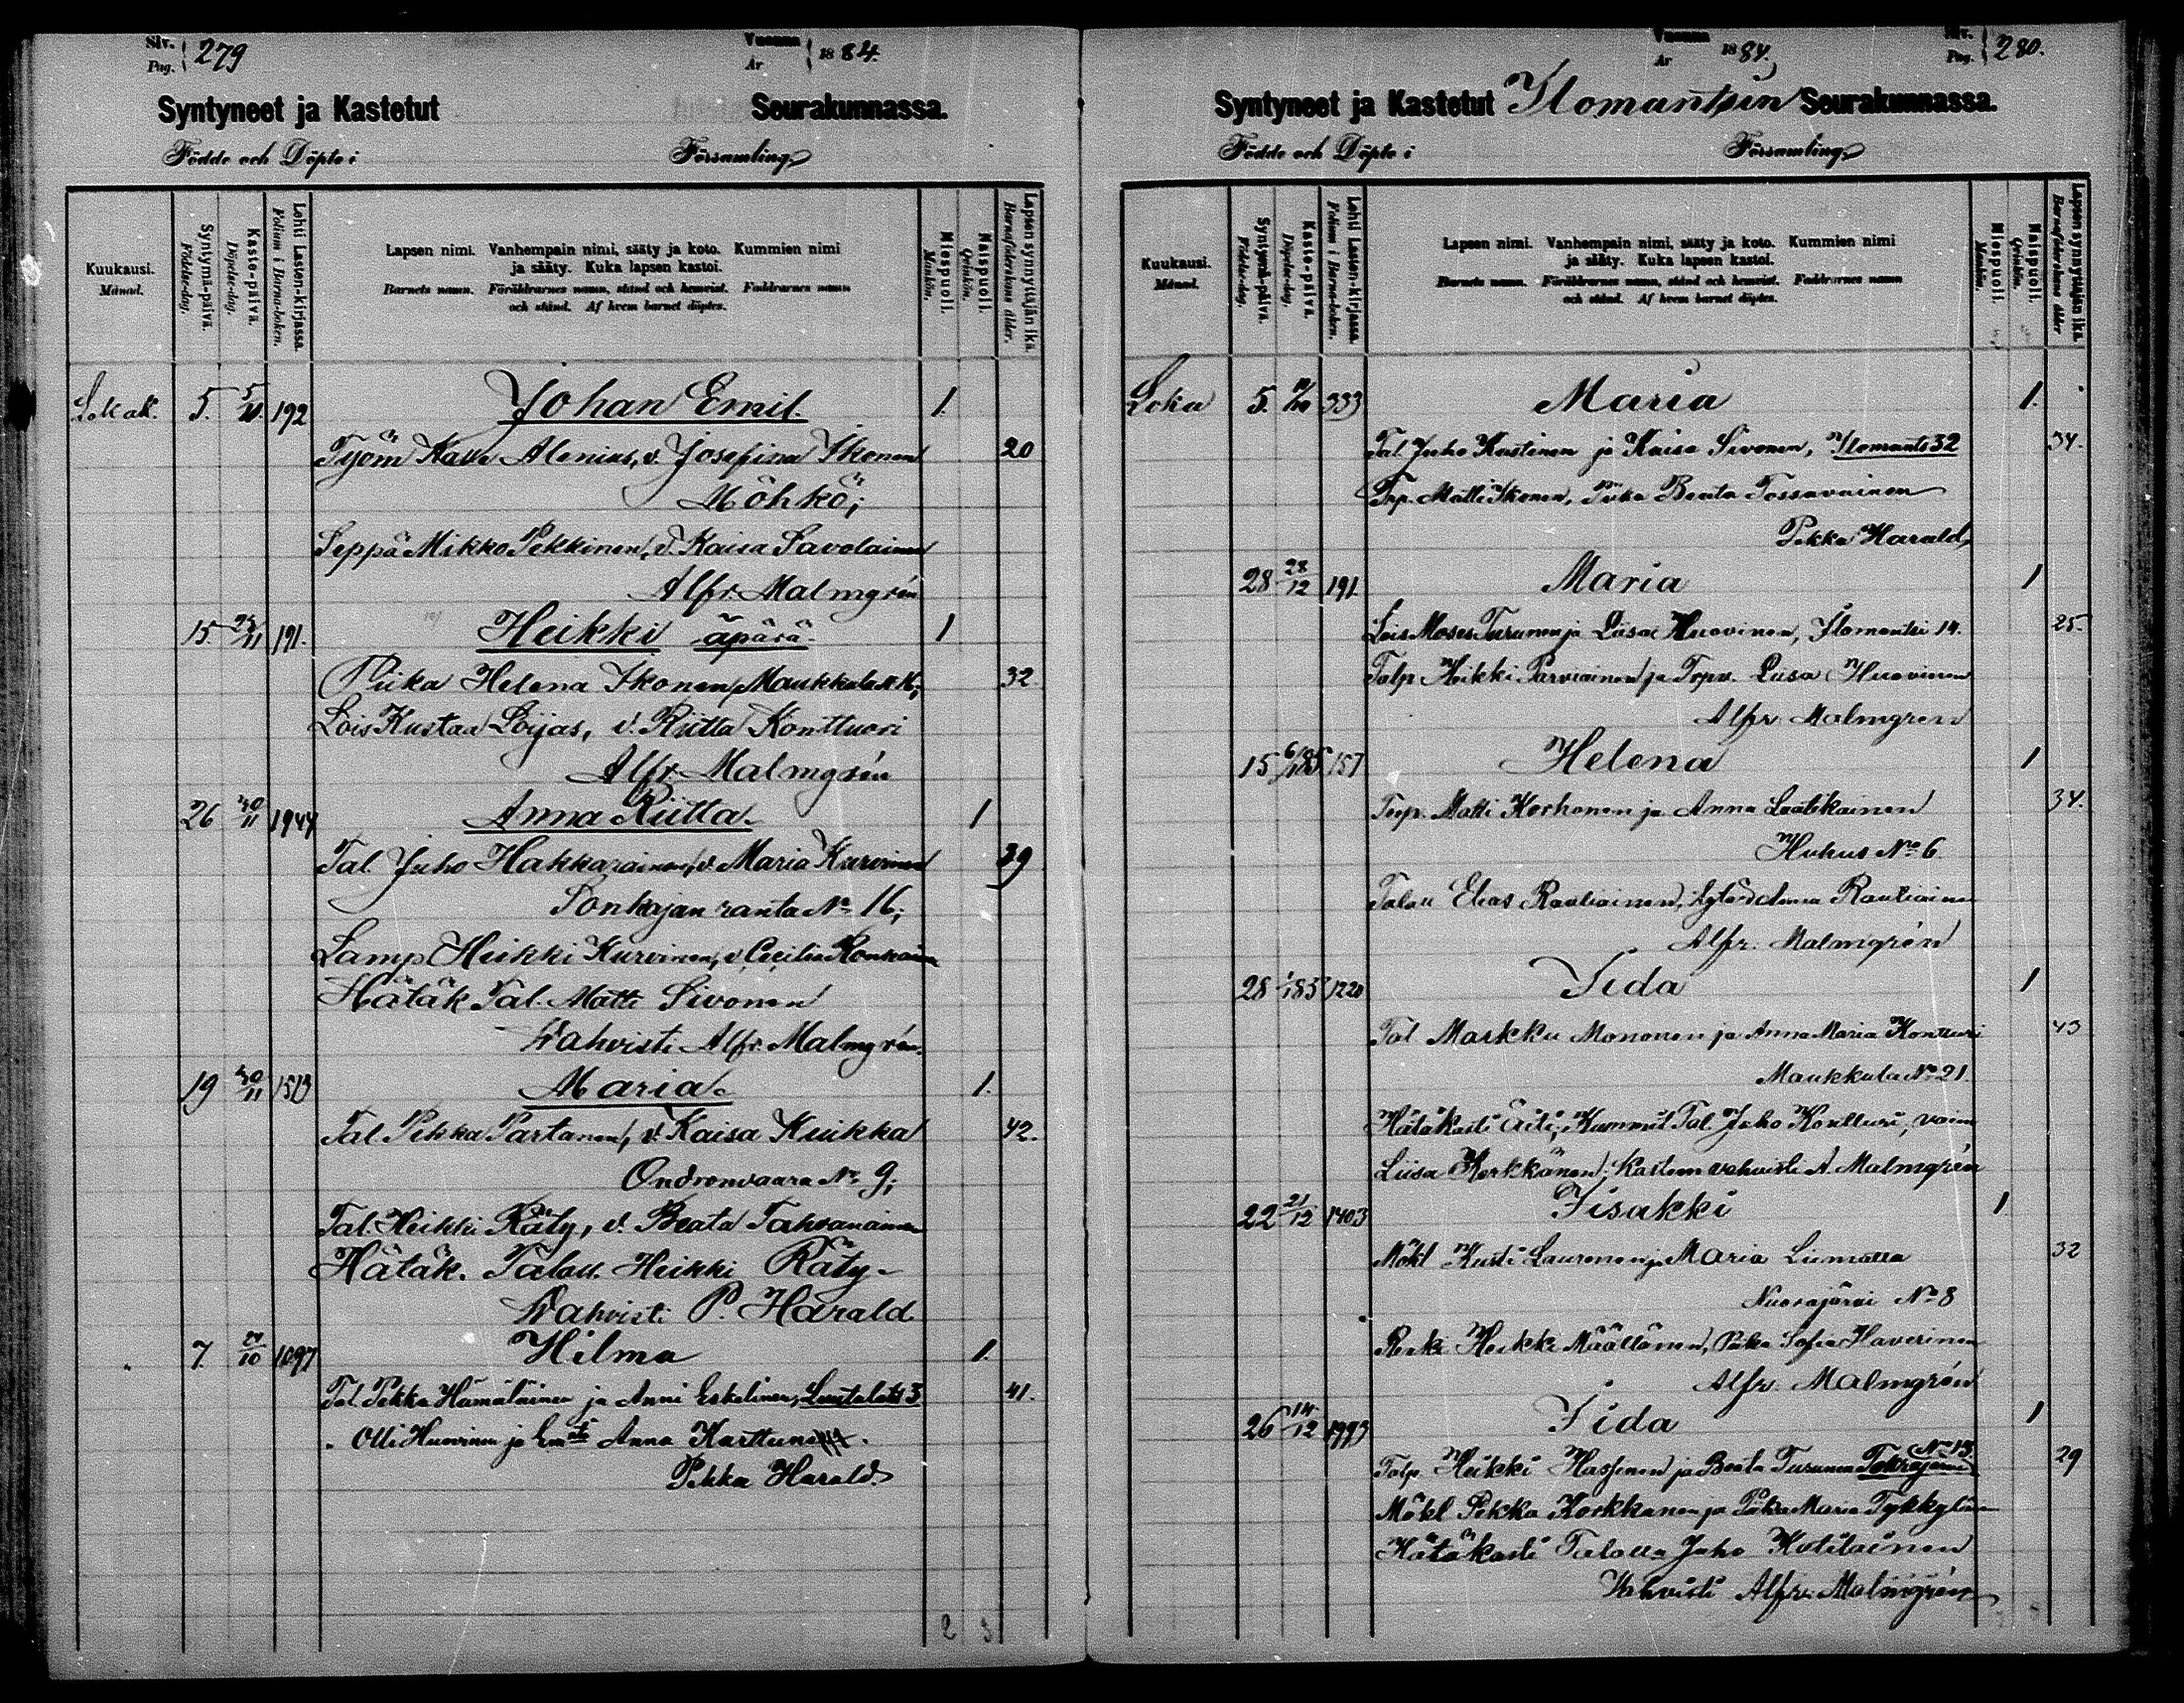 Siv. Pag. 279
Vuonna År 1884.
Syntyneet ja Kastetut Seurakunnassa.
Födde och Döpte i Församling
Kuukausi. Månad.
Syntymä-päivä. Födelse-dag.
Kaste-päivä. Döpelse-dag.
Lehti Lasten-kirjassa. Folium i Barna-boken.
Lapsen nimi. Vanhempain nimi, sääty ja koto. Kummien nimi
ja sääty. Kuka lapsen kastoi.
Barnets namn. Föräldrarnes namn, stånd och hemvist. Faddrarnes namn
och stånd. Af hvem barnet döptes.
Miespuoli. Mankön.
Naispuoli. Qvinkön.
Lapsen synnyttäjän ikä. Barnaföderskans ålder.
Lokak. 5. 5/11 192 Johan Emil. 1.
Työm Kalle Alenius, v. Josefina Ikonen 20
Möhkö;
Seppä Mikko Pekkinen, v. Kaisa Savolainen
Alfr. Malmgrén
15. 23/11 191. Heikki äpärä 1
Piika Helena Ikonen, Maukkula N. 16; 32
Lois Kustaa Loijas, v. Riitta Konttuori
Alfr. Malmgrén
26 30/11 1944 Anna Riitta. 1
Tal. Juho Hakkarainen, v. Maria Kurvinen 39
Sonkajan ranta No 16;
Lamp. Heikki Kurvinen, v. Cecilia Ronkainen
Hätäk Tal. Matti Sivonen
Wahvisti Alfr. Malmgrén.
19 30/11 1513 Maria. 1.
Tal. Pekka Partanen, v. Kaisa Kuikka 42.
Ondronvaara No 9;
Tal. Heikki Räty, v. Beata Tahvanainen
Hätäk. Talall. Heikki Räty
Wahvisti P. Harald
" 7. 24/10 1097 Hilma 1.
Tal. Pekka Hämäläinen ja Anni Eskelinen, Luutalaks 3 41.
" Olli Huovinen ja Emntä Anna Karttunen
Pekka Harald
2 3
Siv. Pag. 280.
Vuonna År 1884.
Syntyneet ja Kastetut Ilomantsin Seurakunnassa.
Födde och Döpte i Församling
Kuukausi. Månad.
Syntymä-päivä. Födelse-dag.
Kaste-päivä. Döpelse-dag.
Lehti Lasten-kirjassa. Folium i Barna-boken.
Lapsen nimi. Vanhempain nimi, sääty ja koto. Kummien nimi
ja sääty. Kuka lapsen kastoi.
Barnets namn. Föräldrarnes namn, stånd och hemvist. Faddrarnes namn
och stånd. Af hvem barnet döptes.
Miespuoli. Mankön.
Naispuoli. Qvinkön.
Lapsen synnyttäjän ikä. Barnaföderskans ålder
Loka 5. 333 Maria 1.
Tal. Juho Kastinen ja Kaisa Sivonen, Ilomants 32 34.
Trp. Matti Ikonen, Piika Beata Tossavainen
Pekka Harald,
28 28/12 191. Maria 1
Lois Moses Turunen ja Liisa Huovinen, Ilomantsi 14. 25.
Talp Heikki Parviainen ja Trpv. Liisa Huovinen
Alfr. Malmgren
15 6/1 85 157 Helena 1
Trp. Matti Korhonen ja Anna Laatikainen 34.
Huhus No 6
Talall Elias Rautiainen, Anna Rautiainen
Alfr. Malmgrén
28 1/1 85 1220 Iida 1
Tal Markku Mononen ja Anna Maria Kontturi 43
Maukkula No 21.
Hätäkasti Äiti; Kummit Tal Juho Kontturi, vaim
Liisa Kerkkänen; Kasteen vahvisti A. Malmgrén
22 21/12 1403 Iisakki 1
Mökl Kusti Lauronen ja Maria Liimatta 32
Nuorajärvi No 8
Renki Heikki Määttänen, Piika Sofia Haverinen
Alfr. Malmgrén
26 14/12 1993 Iida 1
Talp. Heikki Hassinen ja Beata Turunen Tokrajärvi No 13 29
Mökl Pekka Korkkanen ja Piika Maria Tykkyläinen
Hätäkasti Talalln Juho Kotilainen
Vahvisti Alfr. Malmgrén